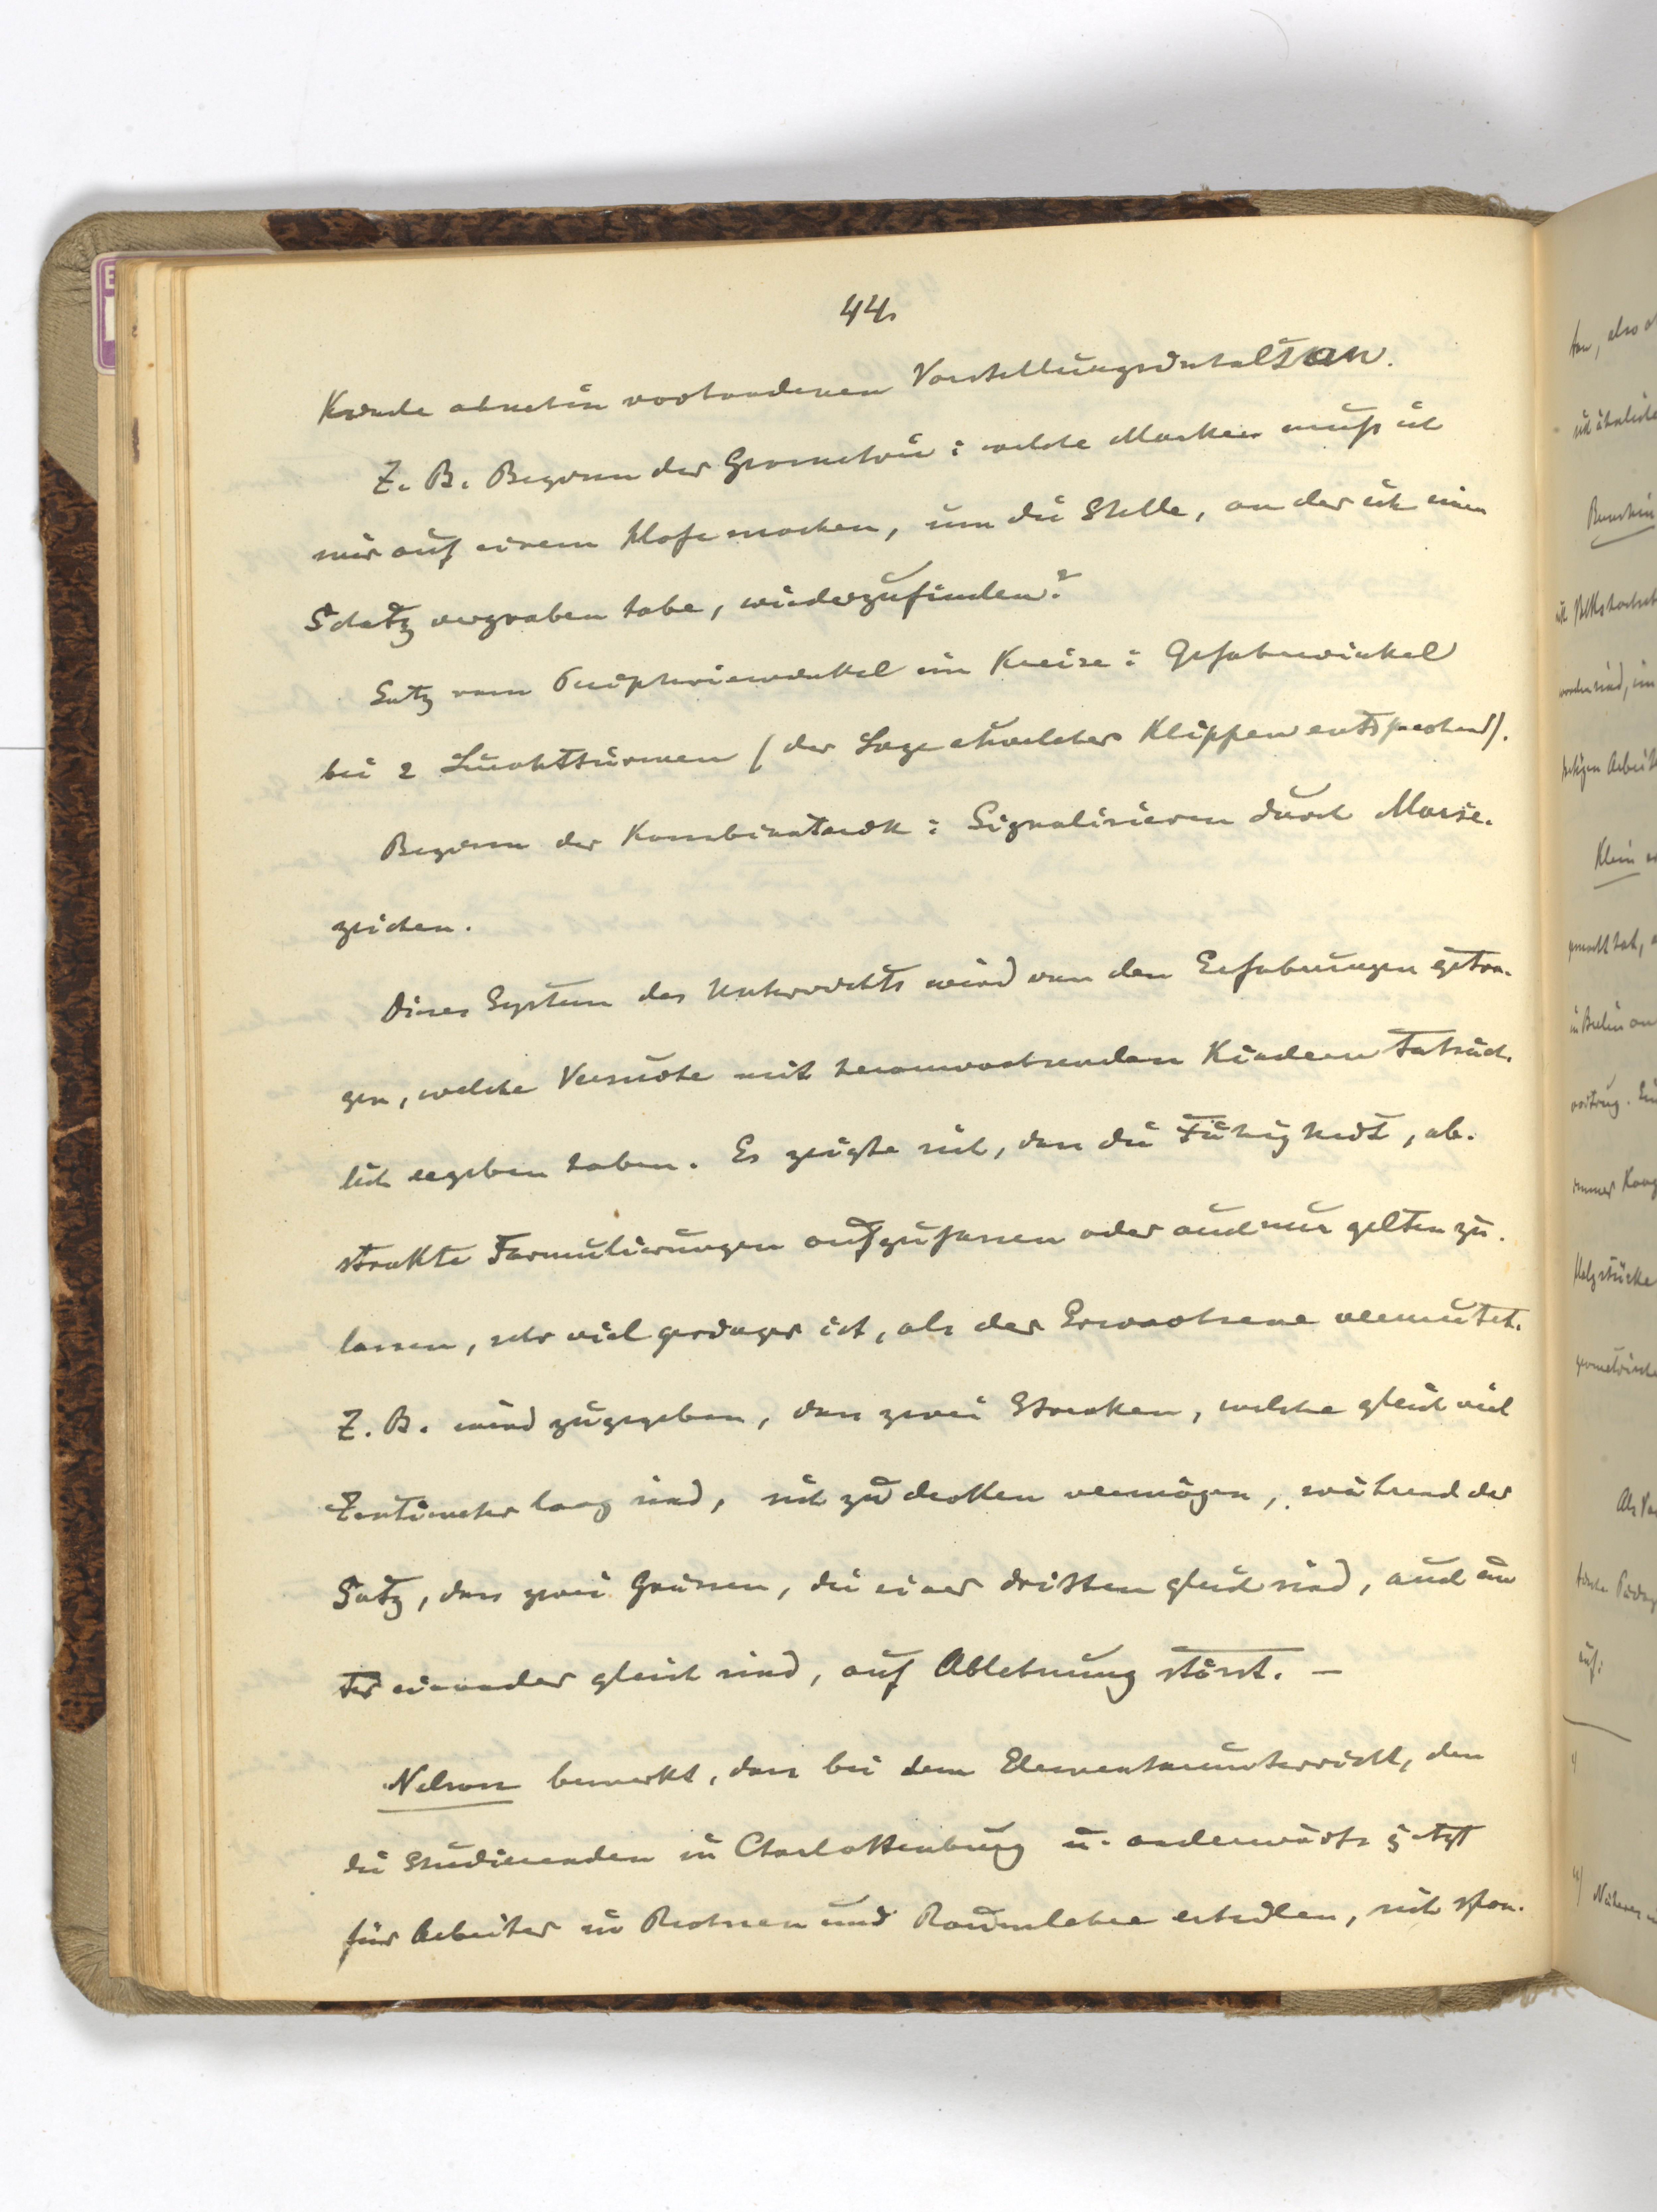 44.
Kinde ohnehin vorhandenen Vorstellungsinhalt an.
Z. B. Beginn der Geometrie: welche Marken muß ich
mir auf einem Hofe machen, um die Stelle, an der ich einen
Schatz vergraben habe, wiederzufinden?
Satz vom Peripheriewinkel im Kreise: Gefahrwinkel
bei 2 Leuchttürmen (der Lage etwelcher Klippen entsprechend).
Beginn der Kombinatorik: Signalisieren durch Morse-
zeichen.
Dieses System des Unterrichts wird von den Erfahrungen getra-
gen, welche Versuche mit heranwachsenden Kindern tatsäch-
lich ergeben haben. Es zeigte sich, dass die Fähigkeit, ab-
strakte Formulierungen aufzufassen oder auch nur gelten zu
lassen, sehr viel geringer ist, als der Erwachsene vermutet.
Z. B. wird zugegeben, dass zwei Strecken, welche gleich viel
Zentimeter lang sind, sich zu decken vermögen, während der
Satz, dass zwei Grössen, die einer dritten gleich sind, auch un
ter einander gleich sind, auf Ablehnung stösst. –
Nelson bemerkt, dass bei dem Elementarunterricht, den
die Studierenden in Charlottenburg u. anderwärts jetzt
für Arbeiter in Rechnen und Raumlehre erteilen, sich spon-
tan, also
ist ähnliche
worden sind, im
Klein
gemacht hat,
in Berlin
vortrug.
immer
Holzstücke
geometrische
auf:
4)
Näheres